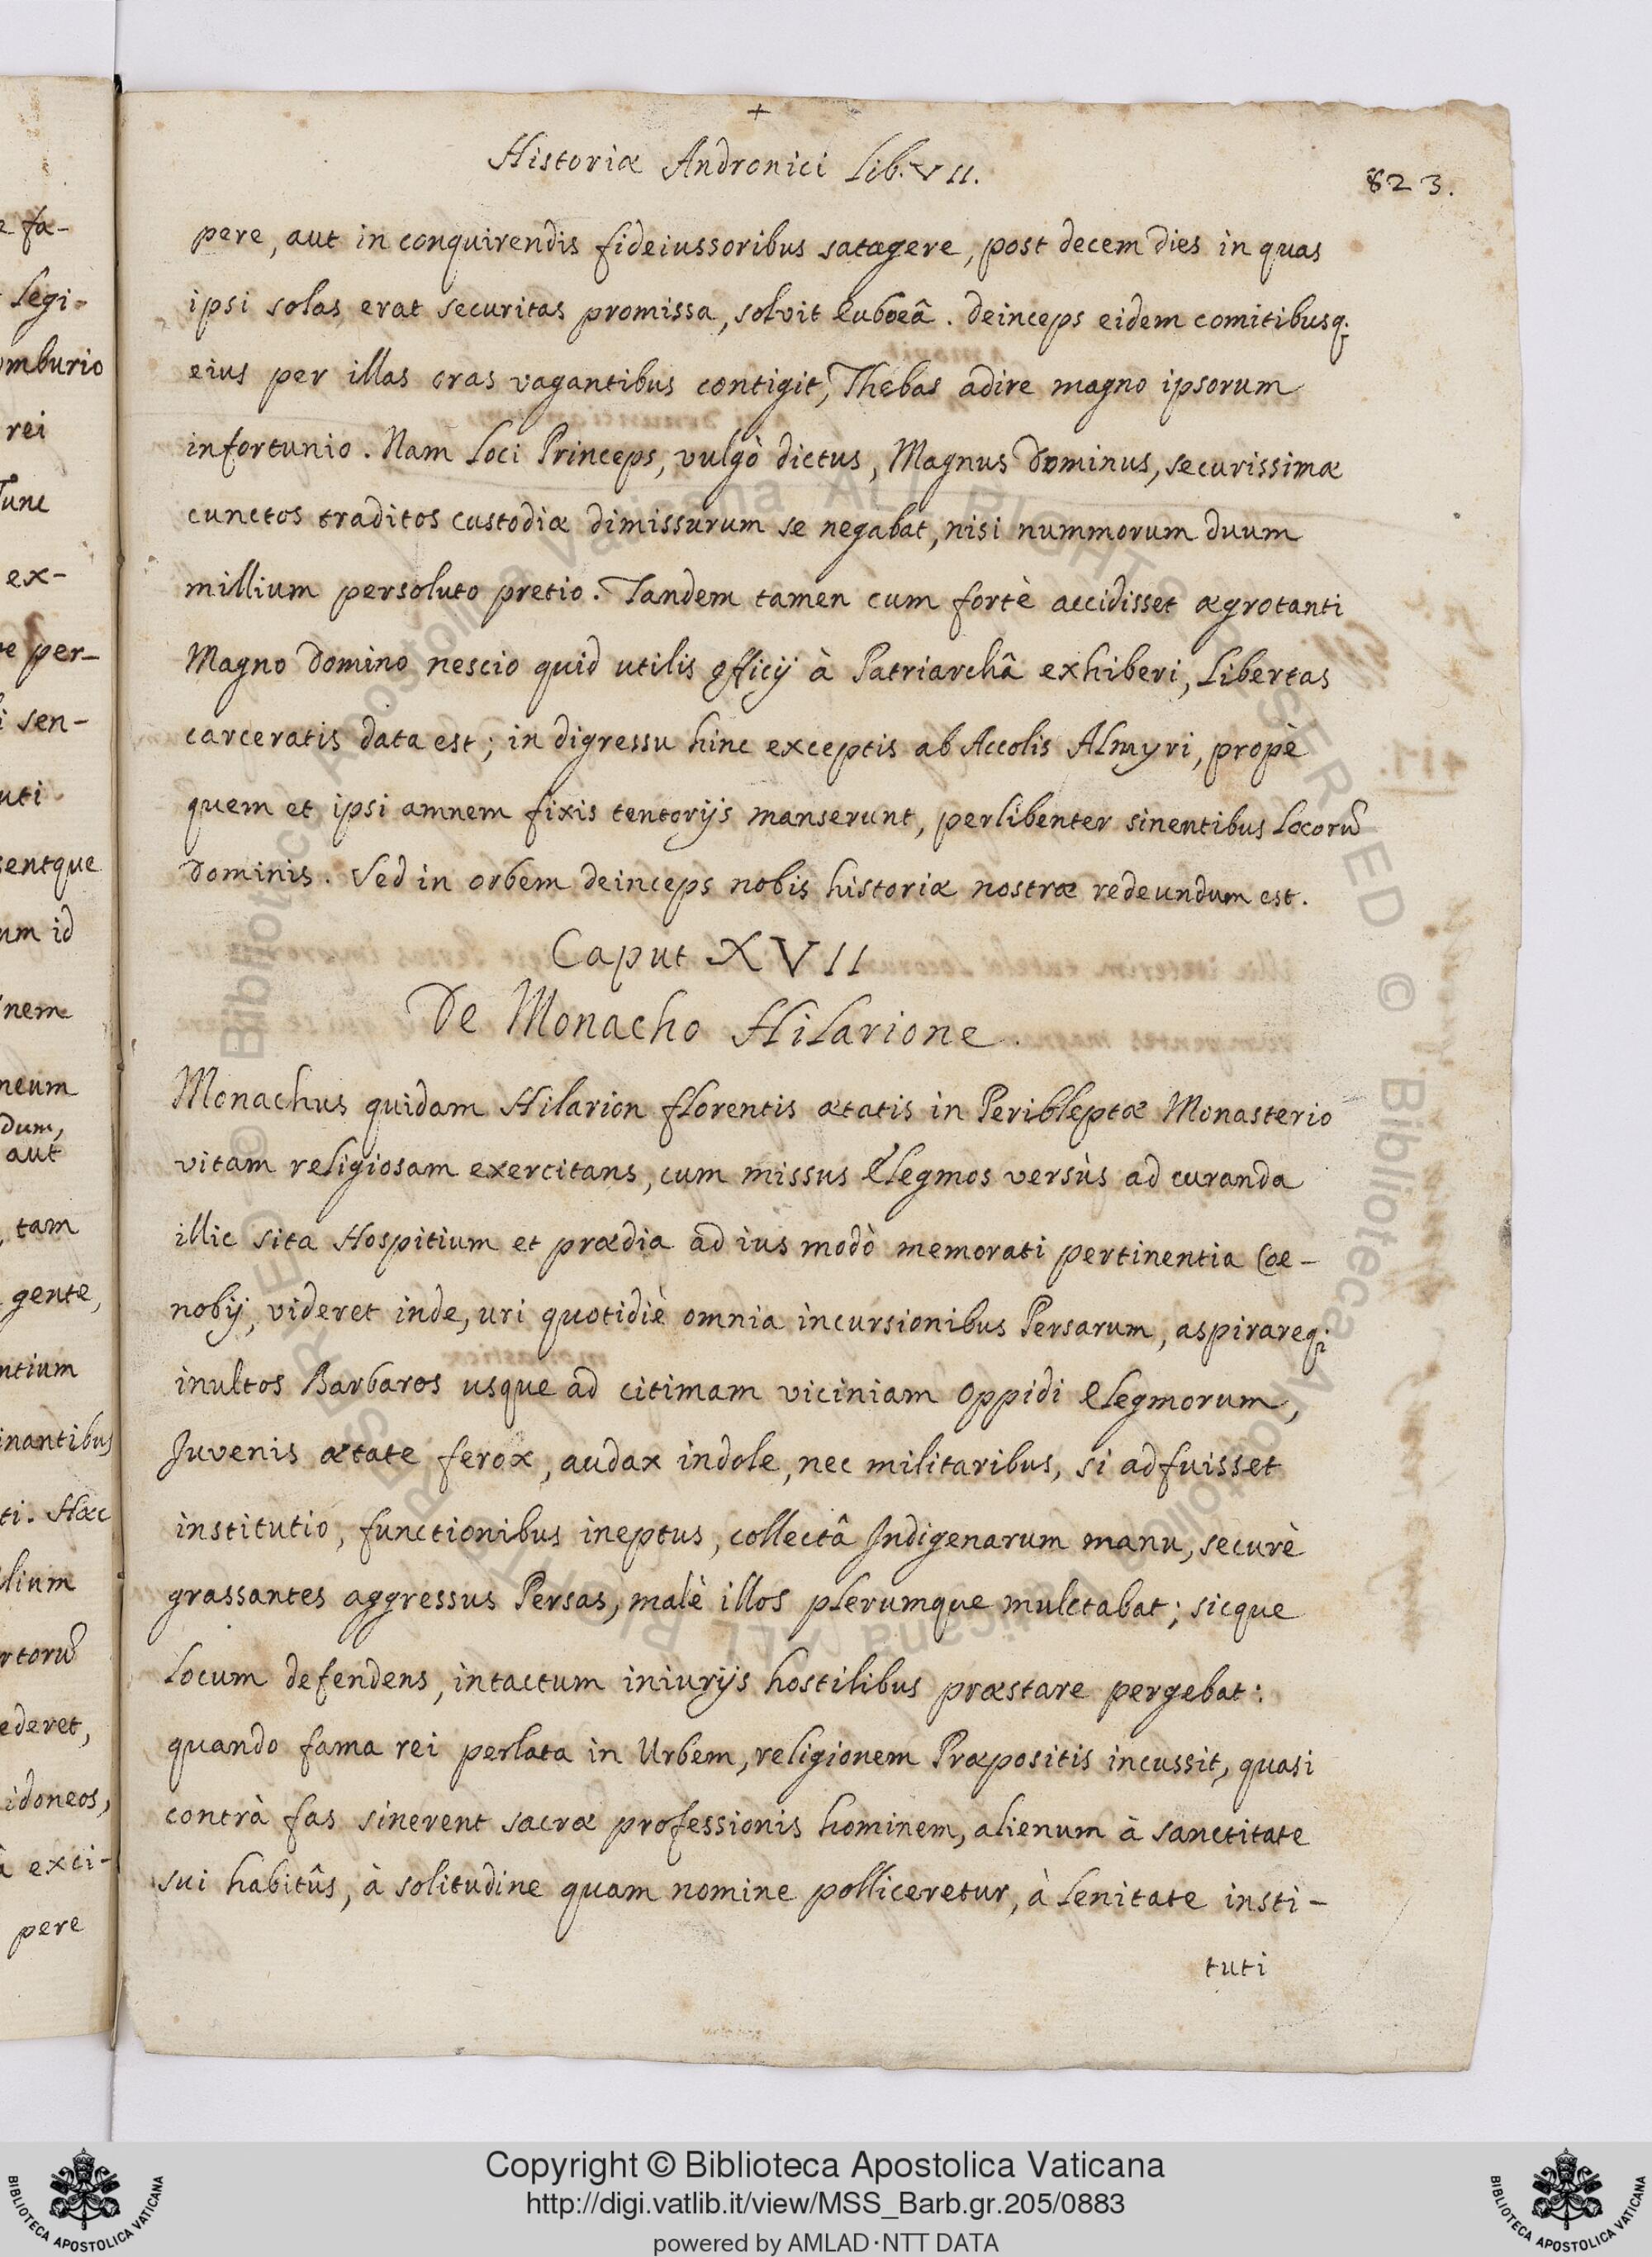 +
Historiæ Andronici Lib. VII.
823.
pere, aut in conquirendis fideiussoribus satagere, post decem dies in quas
ipsi solas erat securitas promissa, solvit Euboeâ. Deinceps eidem comitibusq;
eius per illas oras vagantibus contigit, Thebas adire magno ipsorum
infortunio. Nam Loci Princeps, vulgò dictus, Magnus Dominus, securissimæ
cunctos traditos custodiæ dimissurum se negabat, nisi nummorum duum
millium persoluto pretio. Tandem tamen cum fortè accidisset ægrotanti
Magno Domino nescio quid utilis officij à Patriarchâ exhiberi, Libertas
carceratis data est; in digressu hinc exceptis ab Accolis Almyri, propè
quem et ipsi amnem fixis tentorijs manserunt, perlibenter sinentibus Locorū
Dominis. Sed in orbem deinceps nobis historiæ nostræ redeundum est.
Caput XVII
De Monacho Hilarione.
Monachus quidam Hilarion florentis ætatis in Peribleptæ Monasterio
vitam religiosam exercitans, cum missus Elegmos versùs ad curanda
illic sita Hospitium et prædia ad ius modò memorati pertinentia Cœ-
nobij, videret inde, uri quotidiè omnia incursionibus Persarum, aspirareq;
inultos Barbaros usque ad citimam viciniam Oppidi Elegmorum,
Juvenis ætate ferox, audax indole, nec militaribus, si adfuisset
institutio, functionibus ineptus, collectâ Indigenarum manu, securè
grassantes aggressus Persas, malè illos plerumque mulctabat; sicque
Locum defendens, intactum iniurijs hostilibus præstare pergebat:
quando fama rei perlata in Urbem, religionem Præpositis incussit, quasi
contrà fas sinerent sacræ professionis hominem, alienum à sanctitate
sui habitûs, à solitudine quam nomine polliceretur, à Lenitate insti-
tuti
e fa-
Legi-
omburio
rei
Tunc
ex-
re per-
i sen-
uti
sentque
um id
nem
neum
dum,
aut
, tam
gente,
ntium
inantibus
ti. Hæc
lium
rtorū
ederet,
idoneos,
à exci-
pere
Copyright © Biblioteca Apostolica Vaticana
http://digi.vatlib.it/view/MSS_Barb.gr.205/0883
powered by AMLAD·NTT DATA
BIBLIOTECA APOSTOLICA VATICANA
BIBLIOTECA APOSTOLICA VATICANA